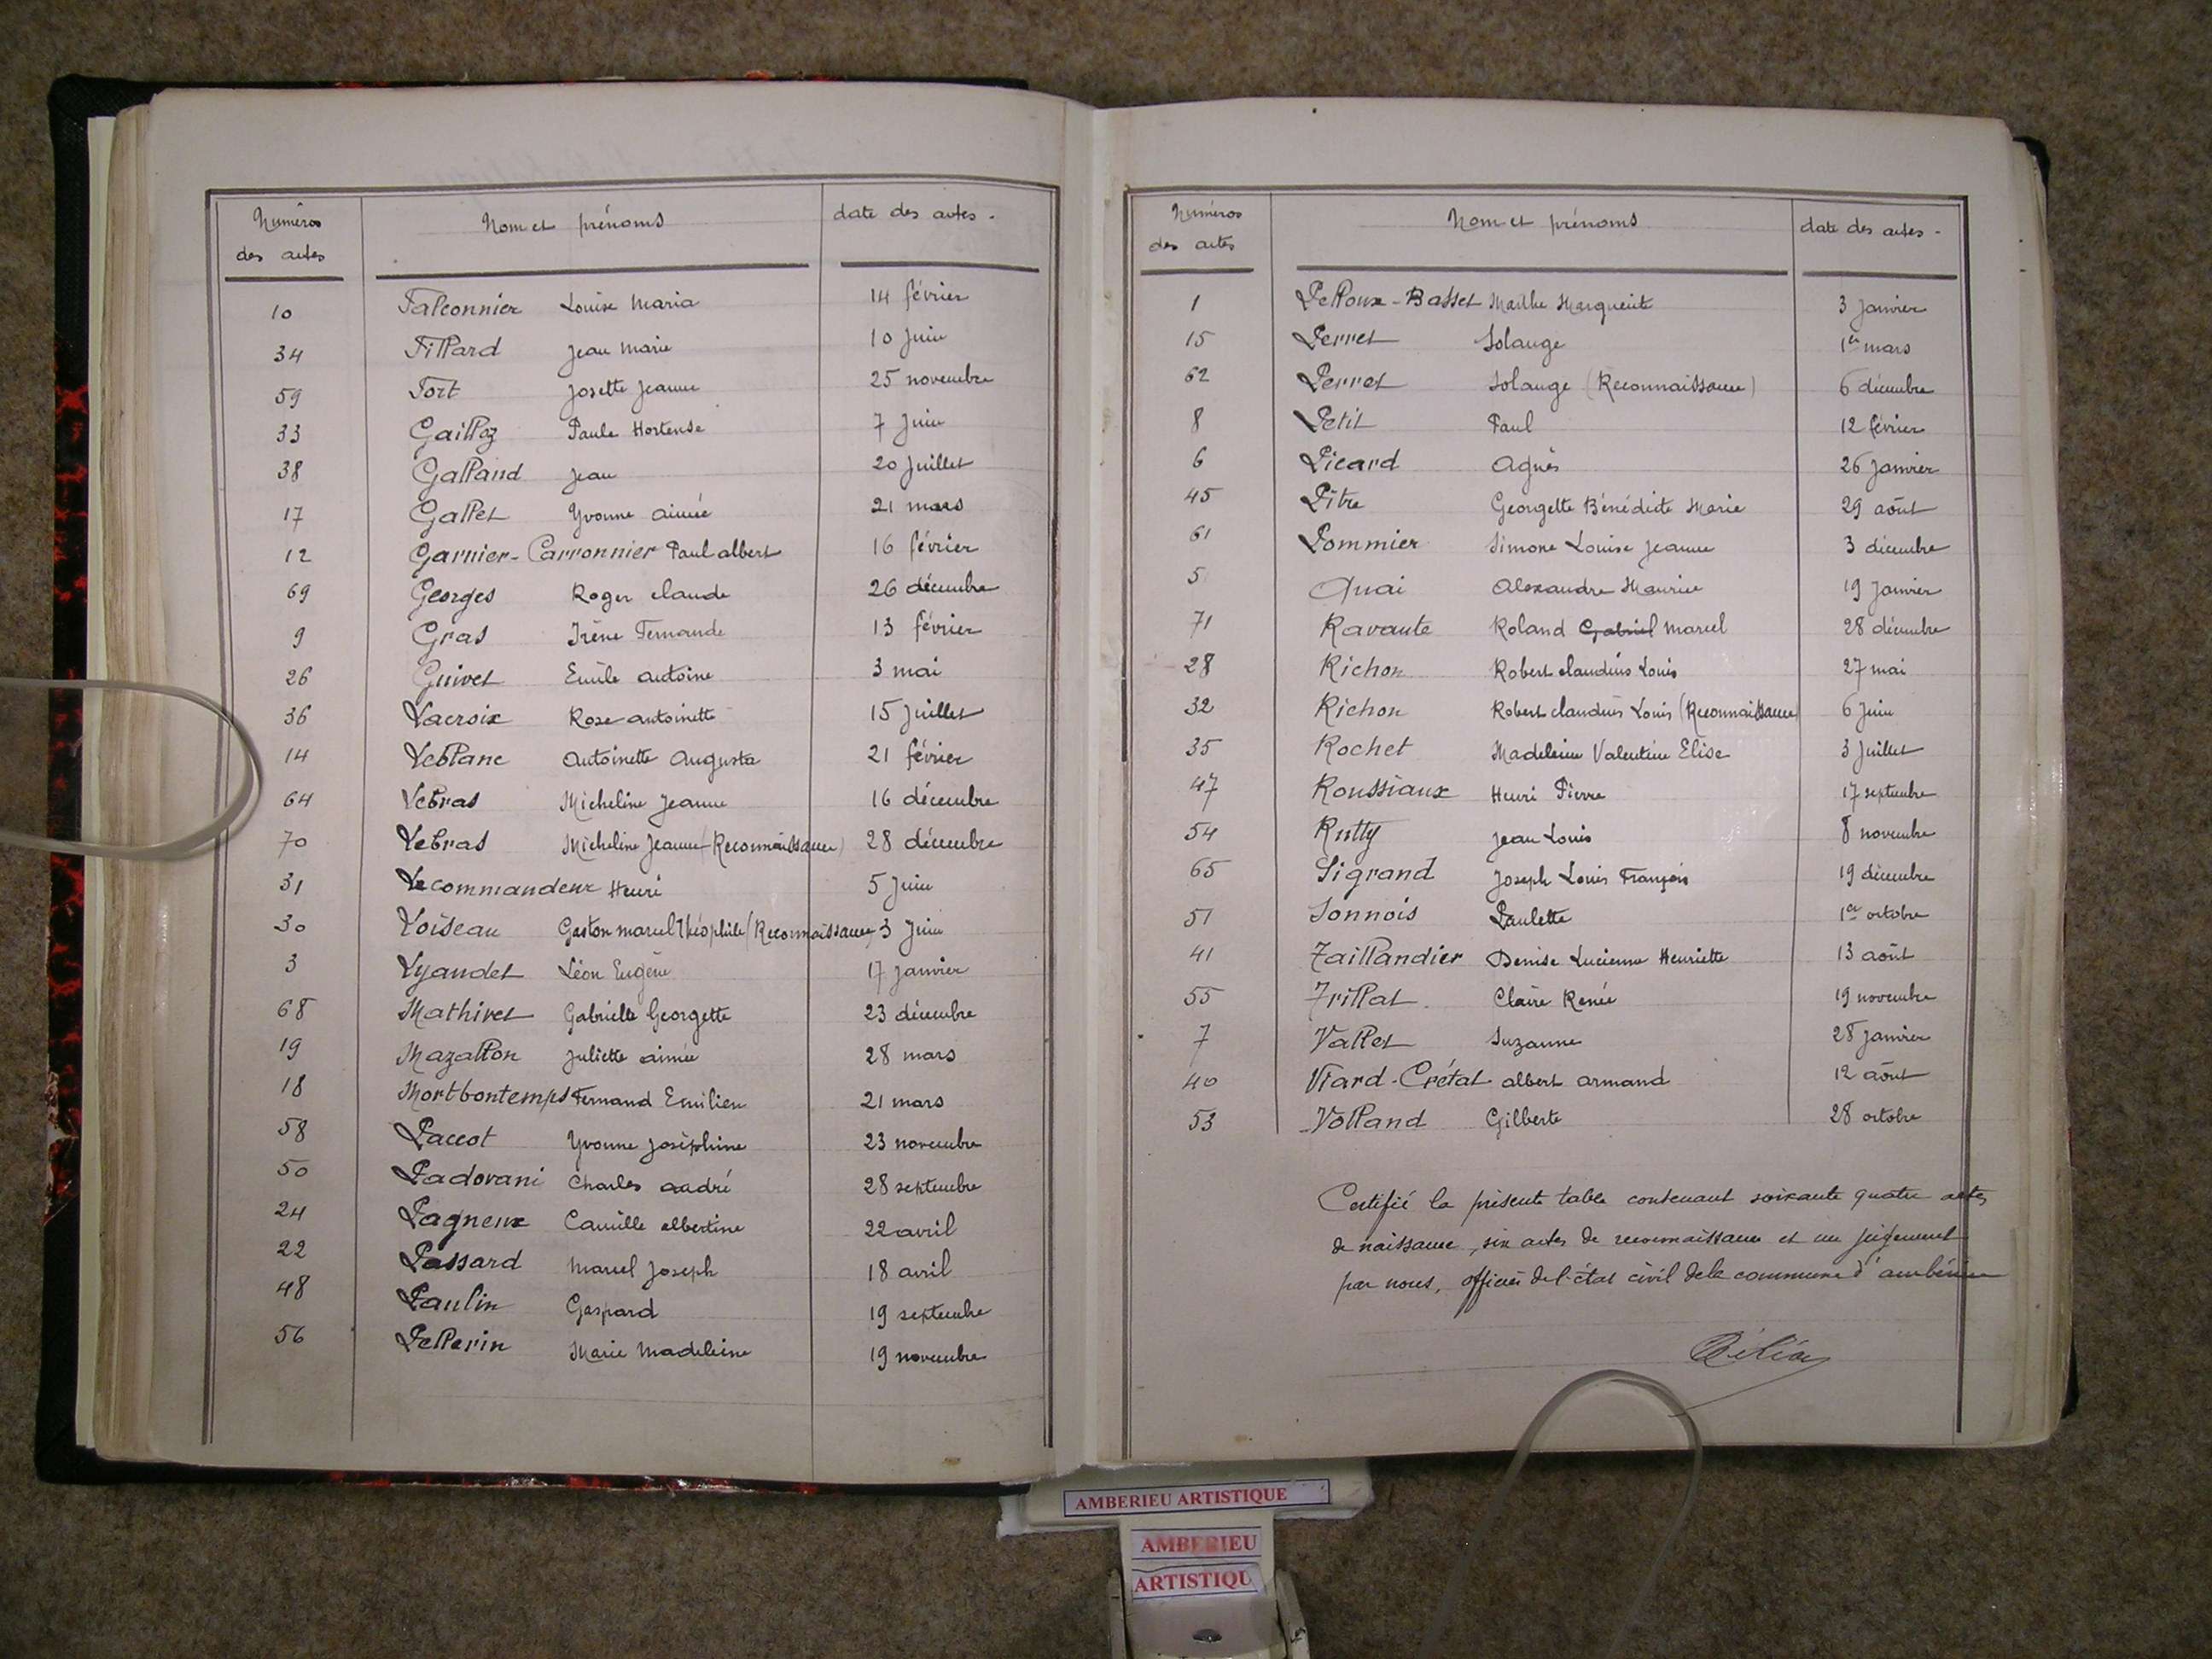 Numéros des actes Nom et prénoms date des actes.
10 Falconnier Louise Maria 14 février
34 Fillard Jean Marie 10 Juin
59 Fort Josette Jeanne 25 novembre
33 Gailloz Paule Hortense 7 Juin
38 Galland Jean 20 Juillet
17 Gallet Yvonne aimée 21 mars
12 Garnier-Carronnier Paul albert 16 février
69 Georges Roger claude 26 décembre
9 Gras Irène Fernande 13 février
26 Guivet Emile antoine 3 mai
36 Lacroix Rose antoinette 15 Juillet
14 Leblanc Antoinette Augusta 21 février
64 Lebras Micheline Jeanne 16 décembre
70 Lebras Micheline Jeanne (Reconnaissance) 28 décembre
31 Lecommandeur Henri 5 Juin
30 Loiseau Gaston marcel Théophile (Reconnaissance) 3 Juin
3 Lyaudet Léon Eugène 17 Janvier
68 Mathivet Gabrielle Georgette 23 décembre
19 Mazallon Juliette aimée 28 mars
18 Mortbontemps Fernand Emilien 21 mars
58 Paccot Yvonne Joséphine 23 novembre
50 Padovani Charles andré 28 septembre
24 Pagneux Camille albertine 22 avril
22 Passard Marcel Joseph 18 avril
48 Paulin Gaspard 19 septembre
56 Pellerin Marie Madeleine 19 novembre
Numéros des actes Nom et prénoms date des actes.
1 Pelloux-Basset Marthe Marguerite 3 Janvier
15 Perret Solange 1er mars
62 Perret Solange (Reconnaissance) 6 décembre
8 Petit Paul 12 février
6 Picard Agnès 26 Janvier
45 Pitre Georgette Bénédicte Marie 29 août
61 Pommier Simone Louise Jeanne 3 décembre
5 Quai Alexandre Maurice 19 Janvier
71 Ravaute Roland Gabriel Marcel 28 décembre
28 Richon Robert claudius Louis 27 mai
32 Richon Robert claudius Louis (Reconnaissance) 6 Juin
35 Rochet Madeleine Valentine Elise 3 Juillet
47 Roussiaux Henri Pierre 17 septembre
54 Rutty Jean Louis 8 novembre
65 Sigrand Joseph Louis François 19 décembre
51 Sonnois Paulette 1er octobre
41 Taillandier Denise Lucienne Henriette 13 août
55 Trillat Claire Renée 19 novembre
7 Vallet Suzanne 28 Janvier
40 Viard-Crétat albert armand 12 août
53 Volland Gilberte 28 octobre
Certifié la présente table contenant soixante quatre actes
de naissance, six actes de reconnaissance et un jugement
par nous, officier de l'état civil de la commune d'ambérieu
AMBERIEU ARTISTIQUE
AMBERIEU
ARTISTIQU